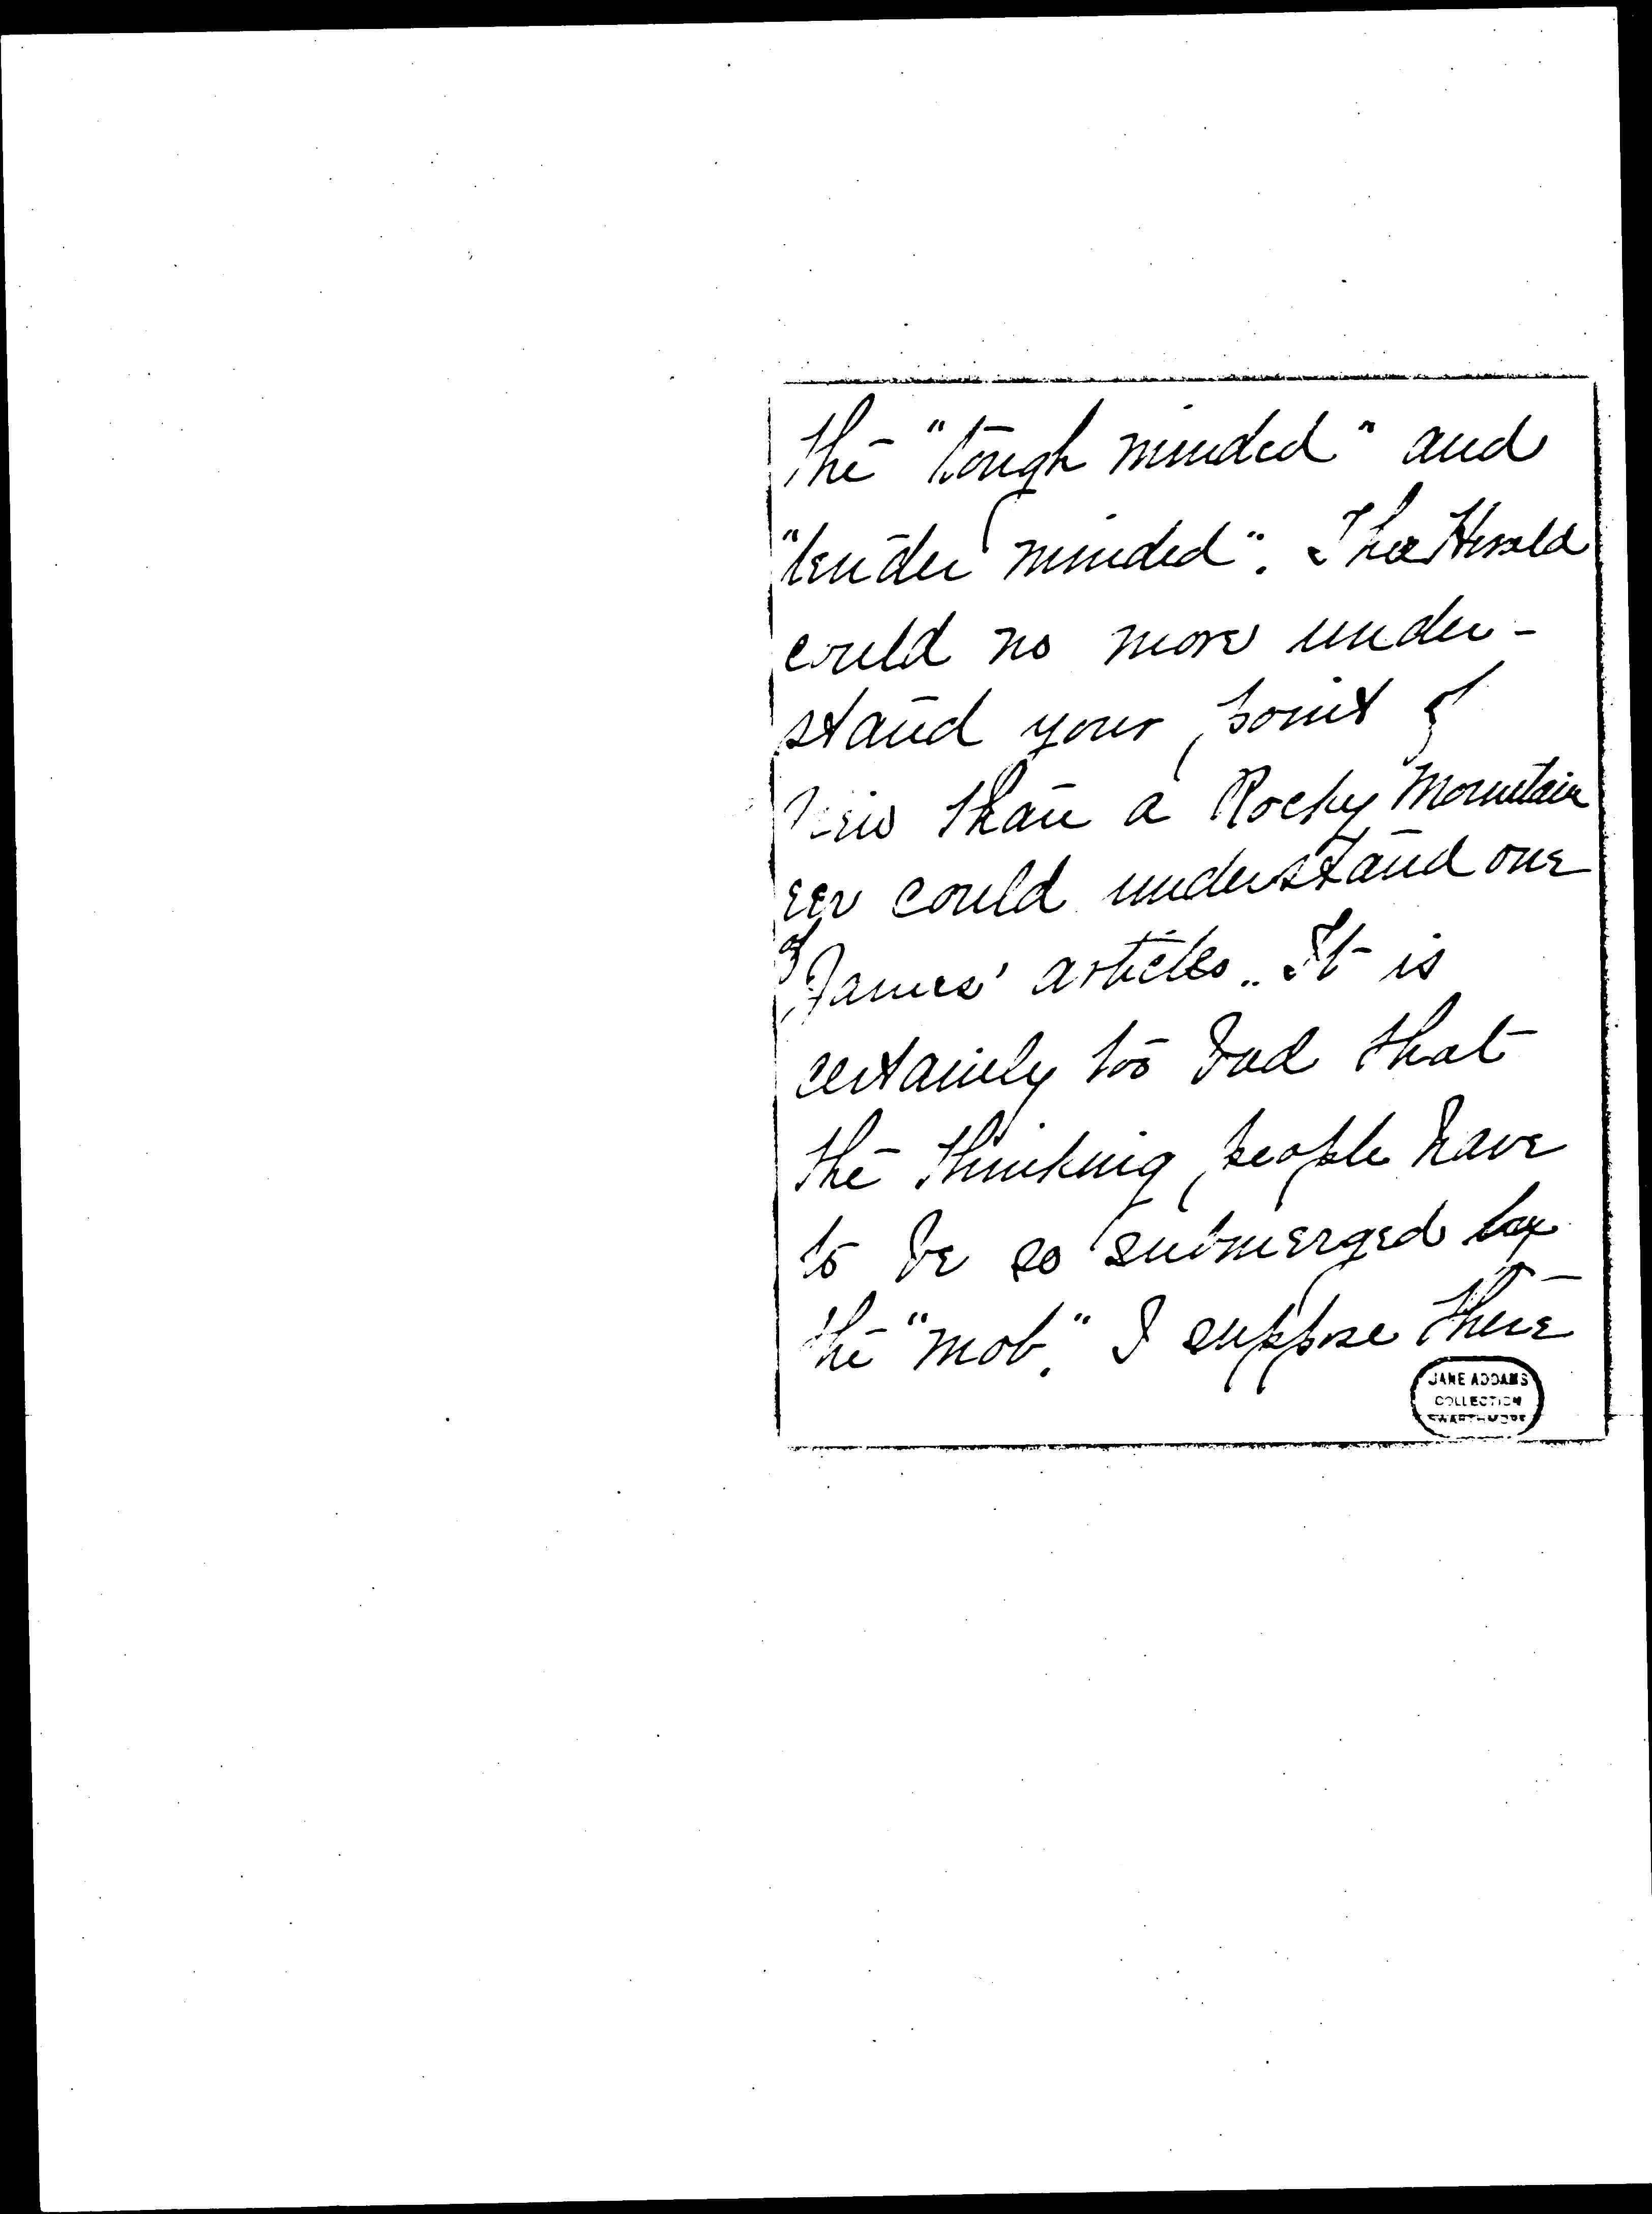 the "tough minded" and
"tender minded". The Herald
could no more under-
stand your point of
view than a Rocky Mountain
eer could understand one
of James' articles. It is
certainly too bad that
the thinking people have
to be so submerged by
the "mob." I suppose there
JANE ADDAMS
COLLECTION
SWARTHMORE